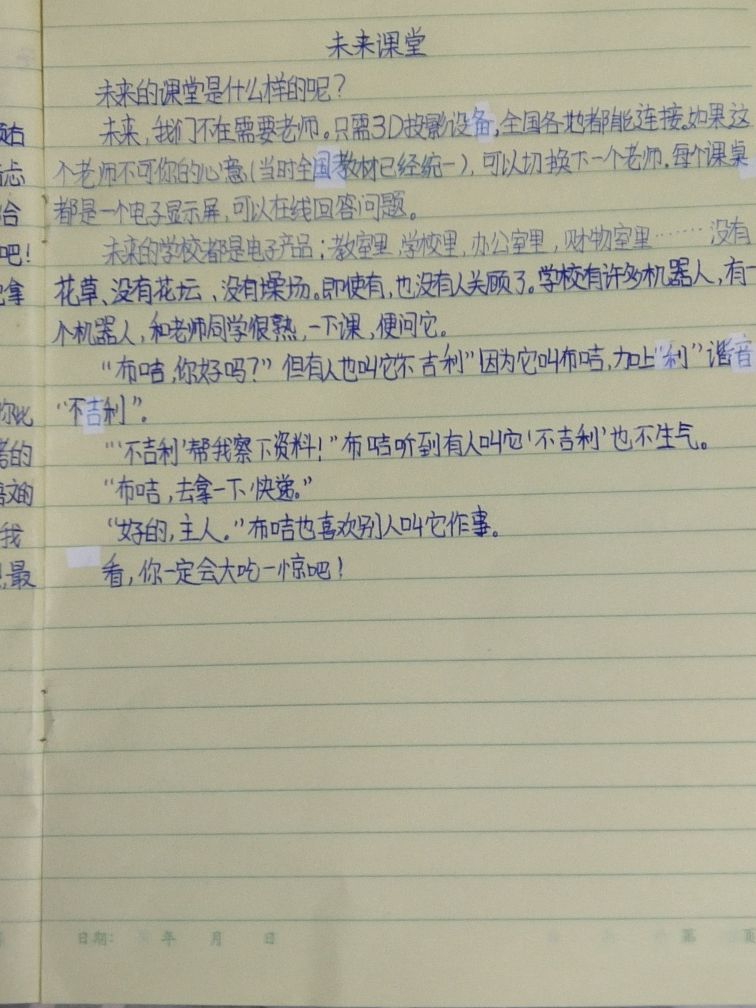 未来课堂
未来的课堂是什么样的呢？
未来，我们不在需要老师。只需3D投影设备，全国各地都能连接。如果这
个老师不可你的心意（当时全国教材已经统一），可以切换下一个老师。每个课桌
都是一个电子显示屏，可以在线回答问题。
未来的学校都是电子产品；教室里，学校里，办公室里，财物室里……没有
花草、没有花坛、没有操场。即使有，也没有人关顾了。学校有许多机器人，有一
个机器人，和老师同学很熟，一下课，便问它。
“布咭，你好吗？”但有人也叫它“不吉利”因为它叫布咭，加上“利”谐音
“不吉利”。
“‘不吉利’帮我察下资料！”布咭听到有人叫它‘不吉利’也不生气。
“布咭，去拿一下快递。”
“好的，主人。”布咭也喜欢别人叫它作事。
看，你一定会大吃一惊吧！
吧！
拿
合
你比
的
我
最
日期： 年 月 日
第 页